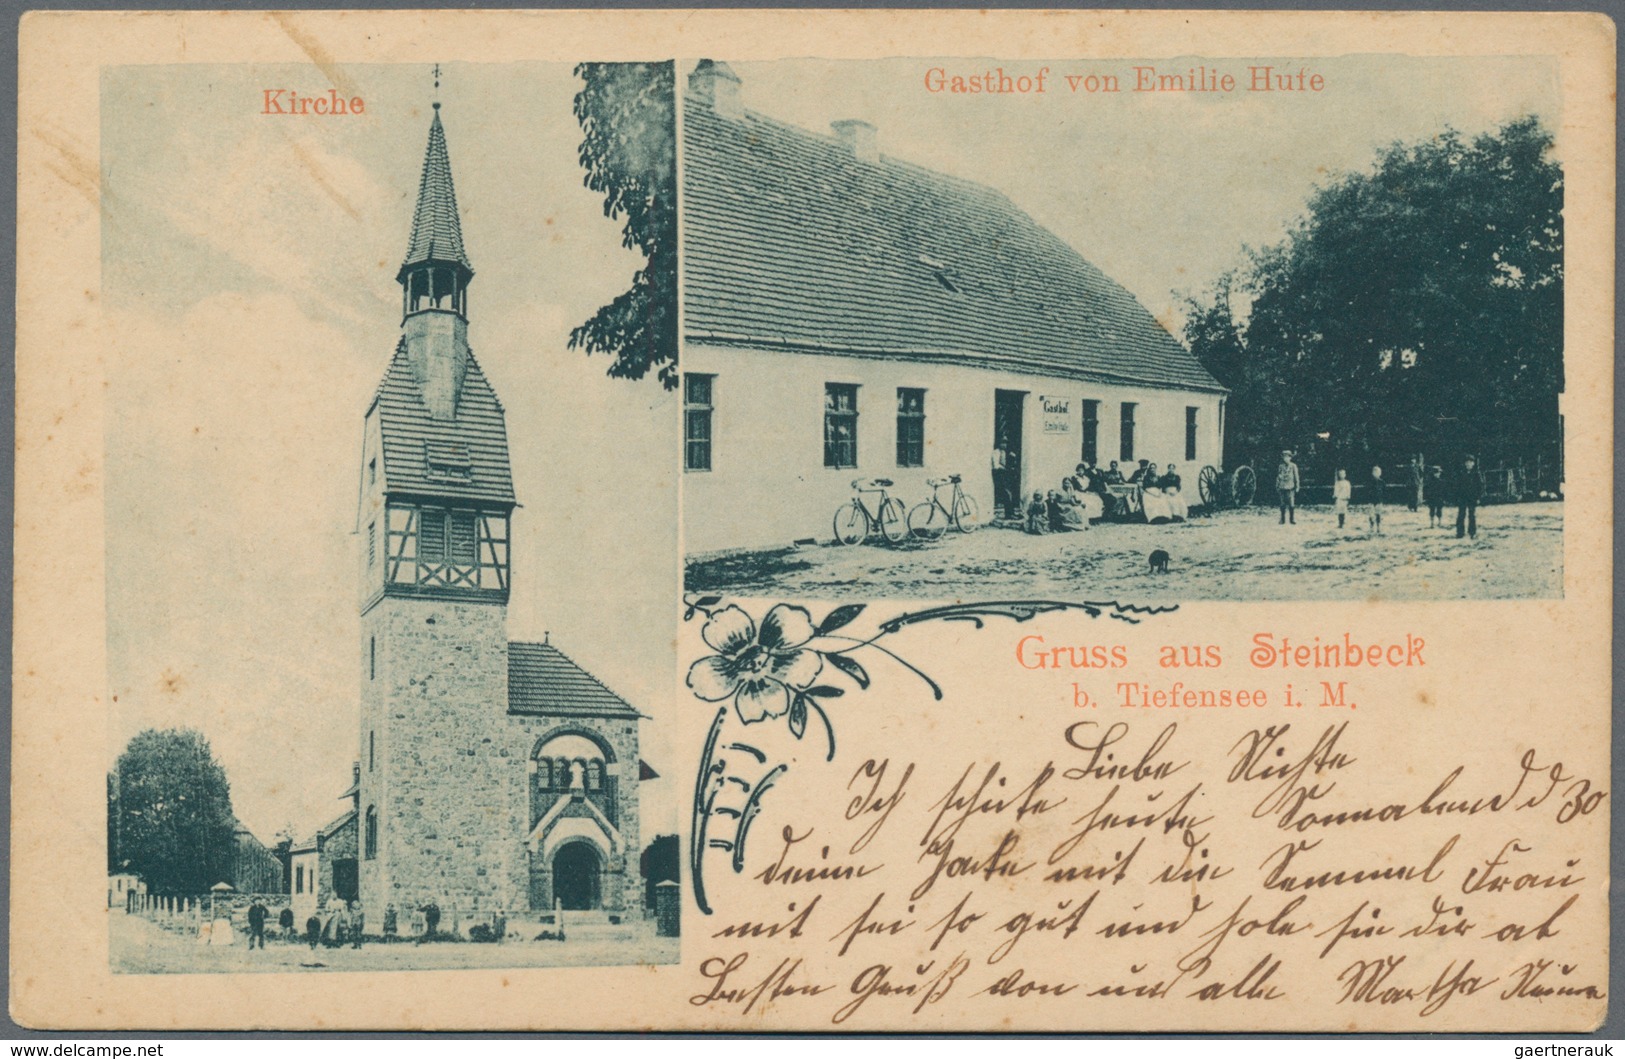 Kirche
Gasthof von Emilie Hufe
Gasthof
Emilie Hufe
Gruss aus Steinbeck
b. Tiefensee i. M.
Liebe Nichte
Ich schicke heute Sonnabend d 30
deine Jacke mit die Semmel Frau
mit sei so gut und hole sie dir ab
Besten Gruß von uns alle Martha
delcampe.net
gaertnerauk